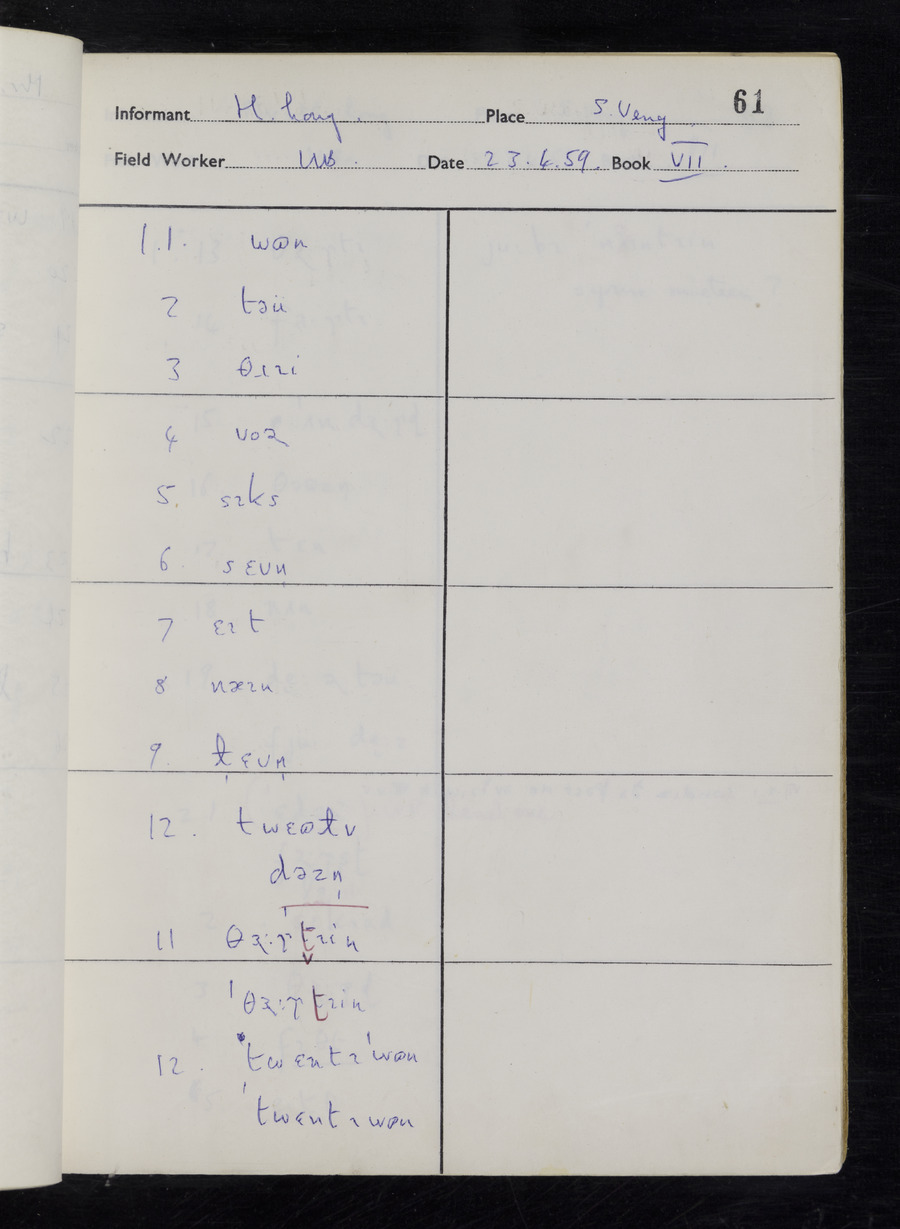 61
Informant H. Place S. Veny
Field Worker WB. Date 23.4.59. Book VII.
1.1. wɷn
2 təü
3 θɪɪi
4 voə
5. sɪks
6. sɛvn̩
7 ɛɪt
8 næɪn
9. t̵ɛvn̩
12. twɛɷt̵v
dəzn̩
11 θɜ:ɽʈɪin
ˈθɜ:ɽʈɪin
12. ˈtwɛntɪˈwɷn
ˈtwɛntɪwɷn